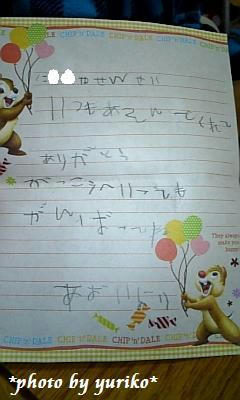 CHIP 'n' DALE CHIP 'n' DALE CHIP 'n' DALE
せんせい
いつもあそんでくれて
ありがとう
がっこうへいっても
がんばってね
They always
make you
happy
あおいより
CHIP 'n' DALE CHIP 'n' DALE CHIP 'n' DALE
*photo by yuriko*